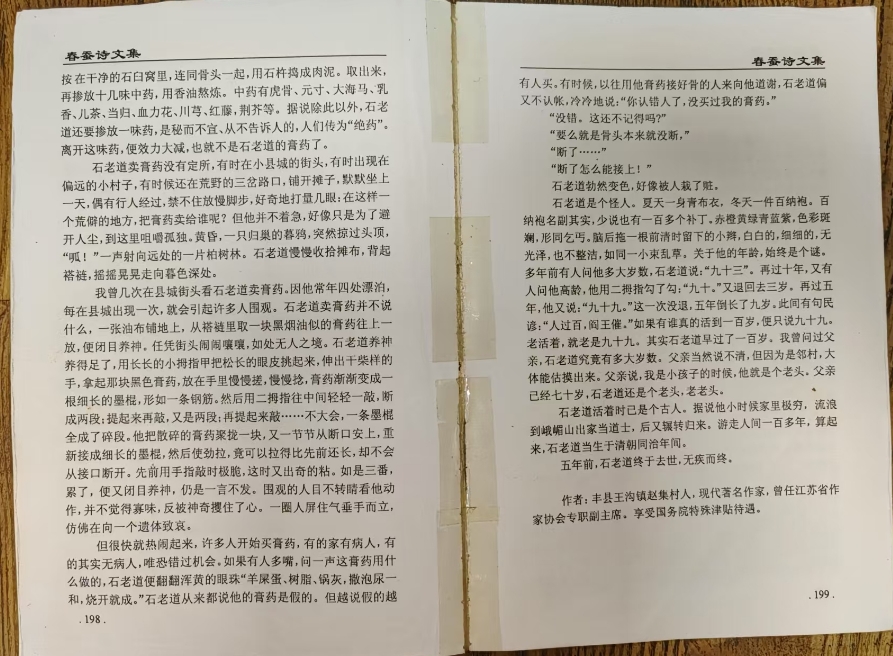 春蚕诗文集
按在干净的石臼窝里，连同骨头一起，用石杵捣成肉泥。取出来，
再掺放十几味中药，用香油熬炼。中药有虎骨、元寸、大海马、乳
香、儿茶、当归、血力花、川芎、红藤，荆芥等。据说除此以外，石老
道还要掺放一味药，是秘而不宣、从不告诉人的，人们传为“绝药”。
离开这味药，便效力大减，也就不是石老道的膏药了。
石老道卖膏药没有定所，有时在小县城的街头，有时出现在
偏远的小村子，有时候还在荒野的三岔路口，铺开摊子，默默坐上
一天，偶有行人经过，禁不住放慢脚步，好奇地打量几眼：在这样一
个荒僻的地方，把膏药卖给谁呢？但他并不着急，好像只是为了避
开人尘，到这里咀嚼孤独。黄昏，一只归巢的暮鸦，突然掠过头顶，
“呱！”一声射向远处的一片柏树林。石老道慢慢收拾摊布，背起
褡裢，摇摇晃晃走向暮色深处。
我曾几次在县城街头看石老道卖膏药。因他常年四处漂泊，
每在县城出现一次，就会引起许多人围观。石老道卖膏药并不说
什么，一张油布铺地上，从褡裢里取一块黑烟油似的膏药往上一
放，便闭目养神。任凭街头闹闹嚷嚷，如处无人之境。石老道养神
养得足了，用长长的小拇指甲把松长的眼皮挑起来，伸出干柴样的
手，拿起那块黑色膏药，放在手里慢慢搓，慢慢捻，膏药渐渐变成一
根细长的墨棍，形如一条钢筋。然后用二拇指往中间轻轻一敲，断
成两段；提起来再敲，又是两段；再提起来敲……不大会，一条墨棍
全成了碎段。他把散碎的膏药聚拢一块，又一节节从断口安上，重
新接成细长的墨棍，然后使劲拉，竟可以拉得比先前还长，却不会
从接口断开。先前用手指敲时极脆，这时又出奇的粘。如是三番，
累了，便又闭目养神，仍是一言不发。围观的人目不转睛看他动
作，并不觉得寡味，反被神奇攫住了心。一圈人屏住气垂手而立，
仿佛在向一个遗体致哀。
但很快就热闹起来，许多人开始买膏药，有的家有病人，有
的其实无病人，唯恐错过机会。如果有人多嘴，问一声这膏药用什
么做的，石老道便翻翻浑黄的眼珠“羊屎蛋、树脂、锅灰，撒泡尿一
和，烧开就成。”石老道从来都说他的膏药是假的。但越说假的越
. 198 .
春蚕诗文集
有人买。有时候，以往用他膏药接好骨的人来向他道谢，石老道偏
又不认帐，冷冷地说：“你认错人了，没买过我的膏药。”
“没错。这还不记得吗？”
“要么就是骨头本来就没断，”
“断了……”
“断了怎么能接上！”
石老道勃然变色，好像被人栽了赃。
石老道是个怪人。夏天一身青布衣，冬天一件百纳袍。百
纳袍名副其实，少说也有一百多个补丁。赤橙黄绿青蓝紫，色彩斑
斓，形同乞丐。脑后拖一根前清时留下的小辫，白白的，细细的，无
光泽，也不整洁，如同一小束乱草。关于他的年龄，始终是个谜。
多年前有人问他多大岁数，石老道说：“九十三”。再过十年，又有
人问他高龄，他用二拇指勾了勾：“九十。”又退回去三岁。再过五
年，他又说：“九十九。”这一次没退，五年倒长了九岁。此间有句民
谚：“人过百，阎王催。”如果有谁真的活到一百岁，便只说九十九。
老活着，就老是九十九。其实石老道早过了一百岁。我曾问过父
亲，石老道究竟有多大岁数。父亲当然说不清，但因为是邻村，大
体能估摸出来。父亲说，我是小孩子的时候，他就是个老头。父亲
已经七十岁，石老道还是个老头，老老头。
石老道活着时已是个古人。据说他小时候家里极穷，流浪
到峨嵋山出家当道士，后又辗转归来。游走人间一百多年，算起
来，石老道当生于清朝同治年间。
五年前，石老道终于去世，无疾而终。
作者：丰县王沟镇赵集村人，现代著名作家，曾任江苏省作
家协会专职副主席。享受国务院特殊津贴待遇。
. 199 .